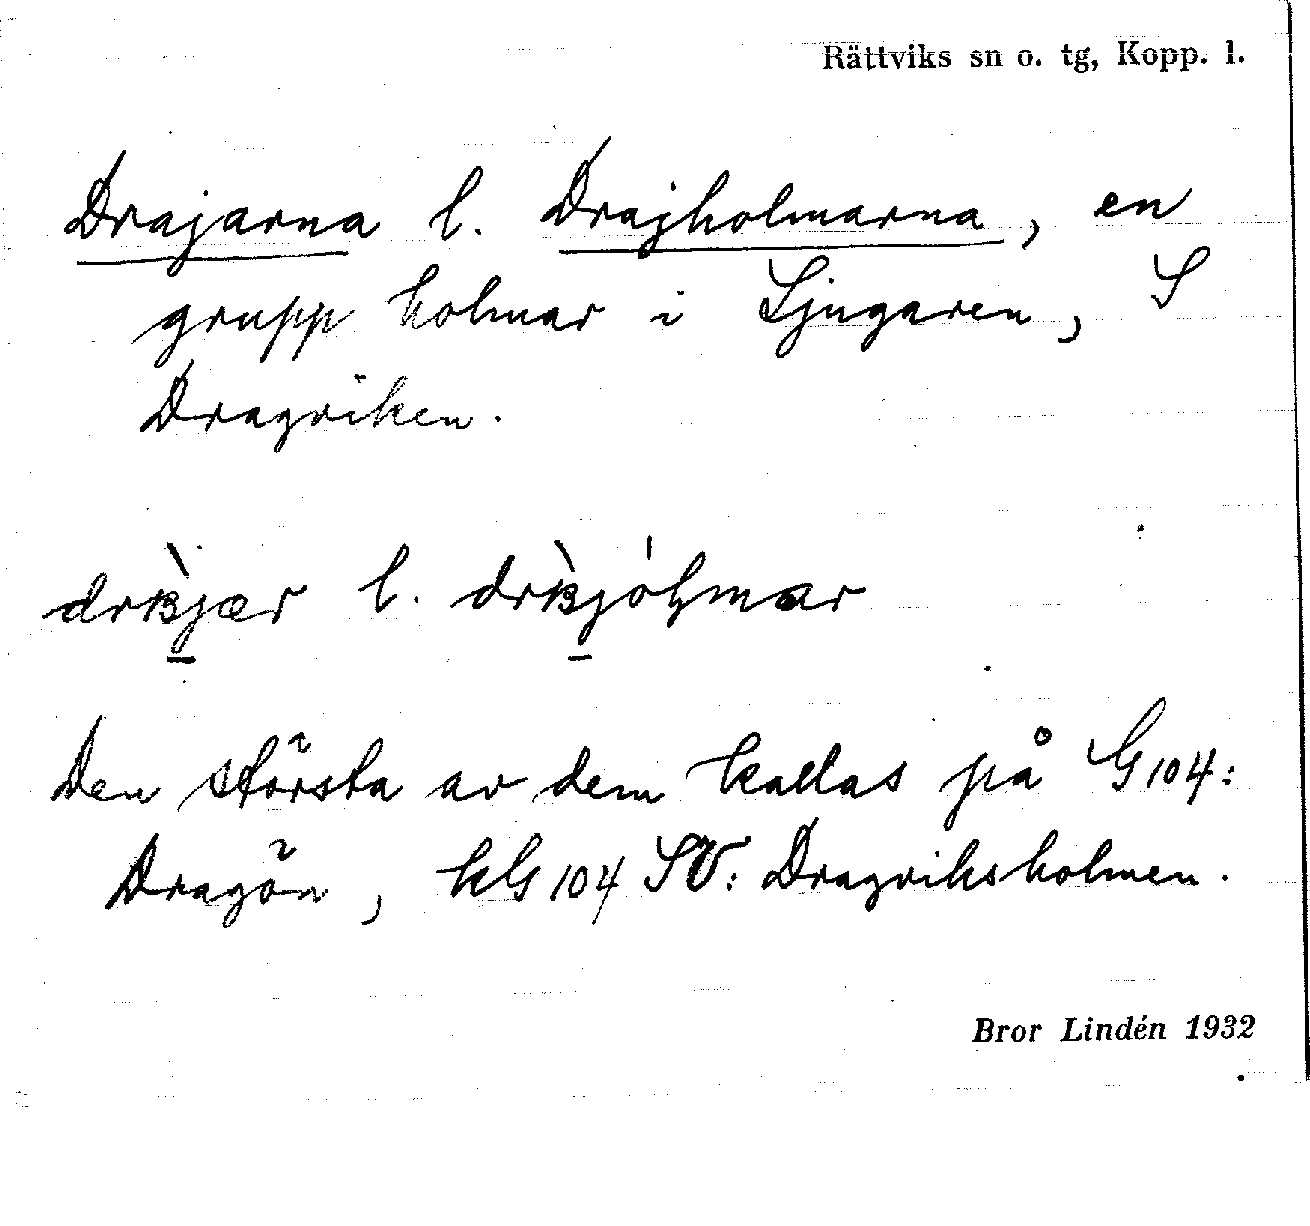 Rättviks sn o. tg, Kopp. l.
Drajarna l. Drajholmarna, en
grupp holmar i Ljugaren, S
Dragviken.
l.
Den största av dem kallas på G104:
Dragön, kG104 SV: Dragviksholmen.
Bror Lindén 1932